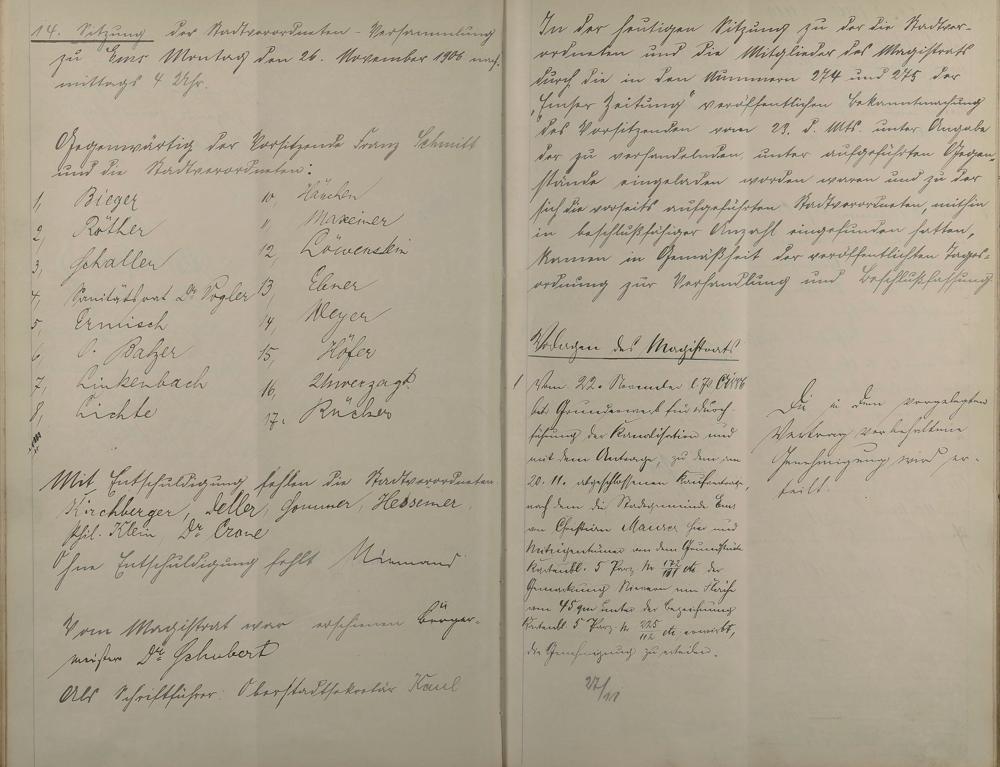 14. Sitzung der Stadtverordneten-Versammlung
zu Ems Montag den 26. November 1906 nach-
mittags 4 Uhr.
Gegenwärtig der Vorsitzende Franz Schmitt
und die Stadtverordneten:
1, Bieger
2, Röther
3, Schallen
4, Sanitätsrat Dr Vogler
5, Ermisch
6, O. Balzer
7, Linkenbach
8, Lichte
10, Härchen
11, Maxeiner
12, Löwenstein
13, Ebner
14, Meyer
15, Höfer
16, Unverzagt
17. Rücker
Mit Entschuldigung fehlen die Stadtverordneten
Kirchberger, Heller, Sommer, Hessemer,
Phil. Klein, Dr Crone
Ohne Entschuldigung fehlt Niemand
Vom Magistrat war erschienen Bürger-
meister Dr Schubert
Als Schriftführer: Oberstadtsekretär Kaul
In der heutigen Sitzung zu der die Stadtver-
ordneten und die Mitglieder des Magistrats
durch die in den Nummern 274 und 275 der
"Emser Zeitung" veröffentlichen Bekanntmachung
des Vorsitzenden vom 23. d. Mts. unter Angabe
der zu verhandelnden, unter aufgeführten Gegen
stände eingeladen worden waren und zu der
sich die vorseits aufgeführten Stadtverordneten, mithin
in beschlußfähiger Anzahl eingefunden hatten,
kamen in Gemäßheit der veröffentlichten Tages-
ordnung zur Verhandlung und Beschlußfassung:
Vorlagen des Magistrats
1 Vom 22. November
betr. Grunderwerb für Durch-
führung der Kanalisation und
mit dem Antrage, zu dem am
20. 11. abgeschlossenen Kaufvertrage,
nach dem die Stadtgemeinde Ems
von Christian Maurer hier und
Miteigentümer von dem Grundstück
Kartenbl. 5 Parz Nr 172/111 etc der
Gemarkung Nievern eine Fläche
von 45 qm unter der Bezeichnung
Kartenbl. 5 Parz. Nr 225/112 etc erwirbt,
die Genehmigung zu erteilen.
27/11
Die in dem vorgelegten
Vertrag vorbehaltene
Genehmigung wird er-
teilt.